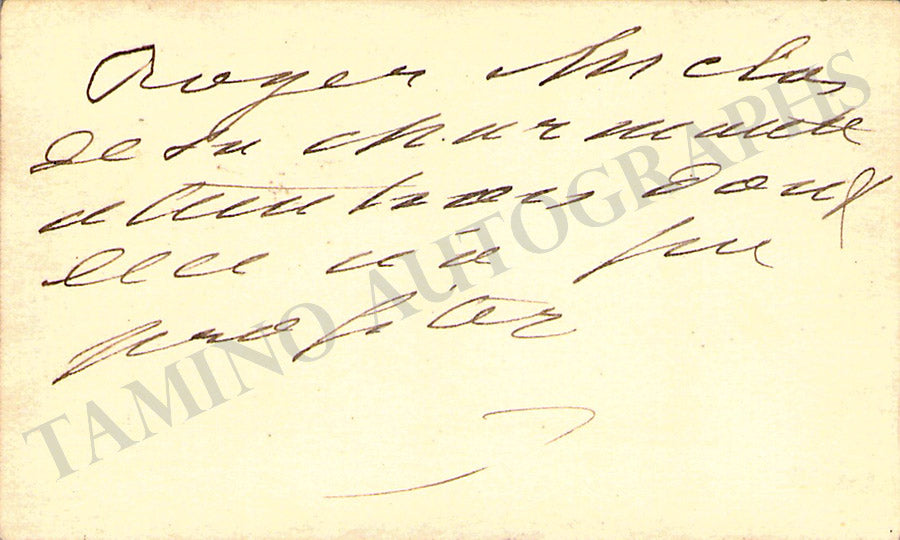 Roger Miclos
de sa charmante
attention dont
elle n'a pu
profiter
TAMINO AUTOGRAPHS